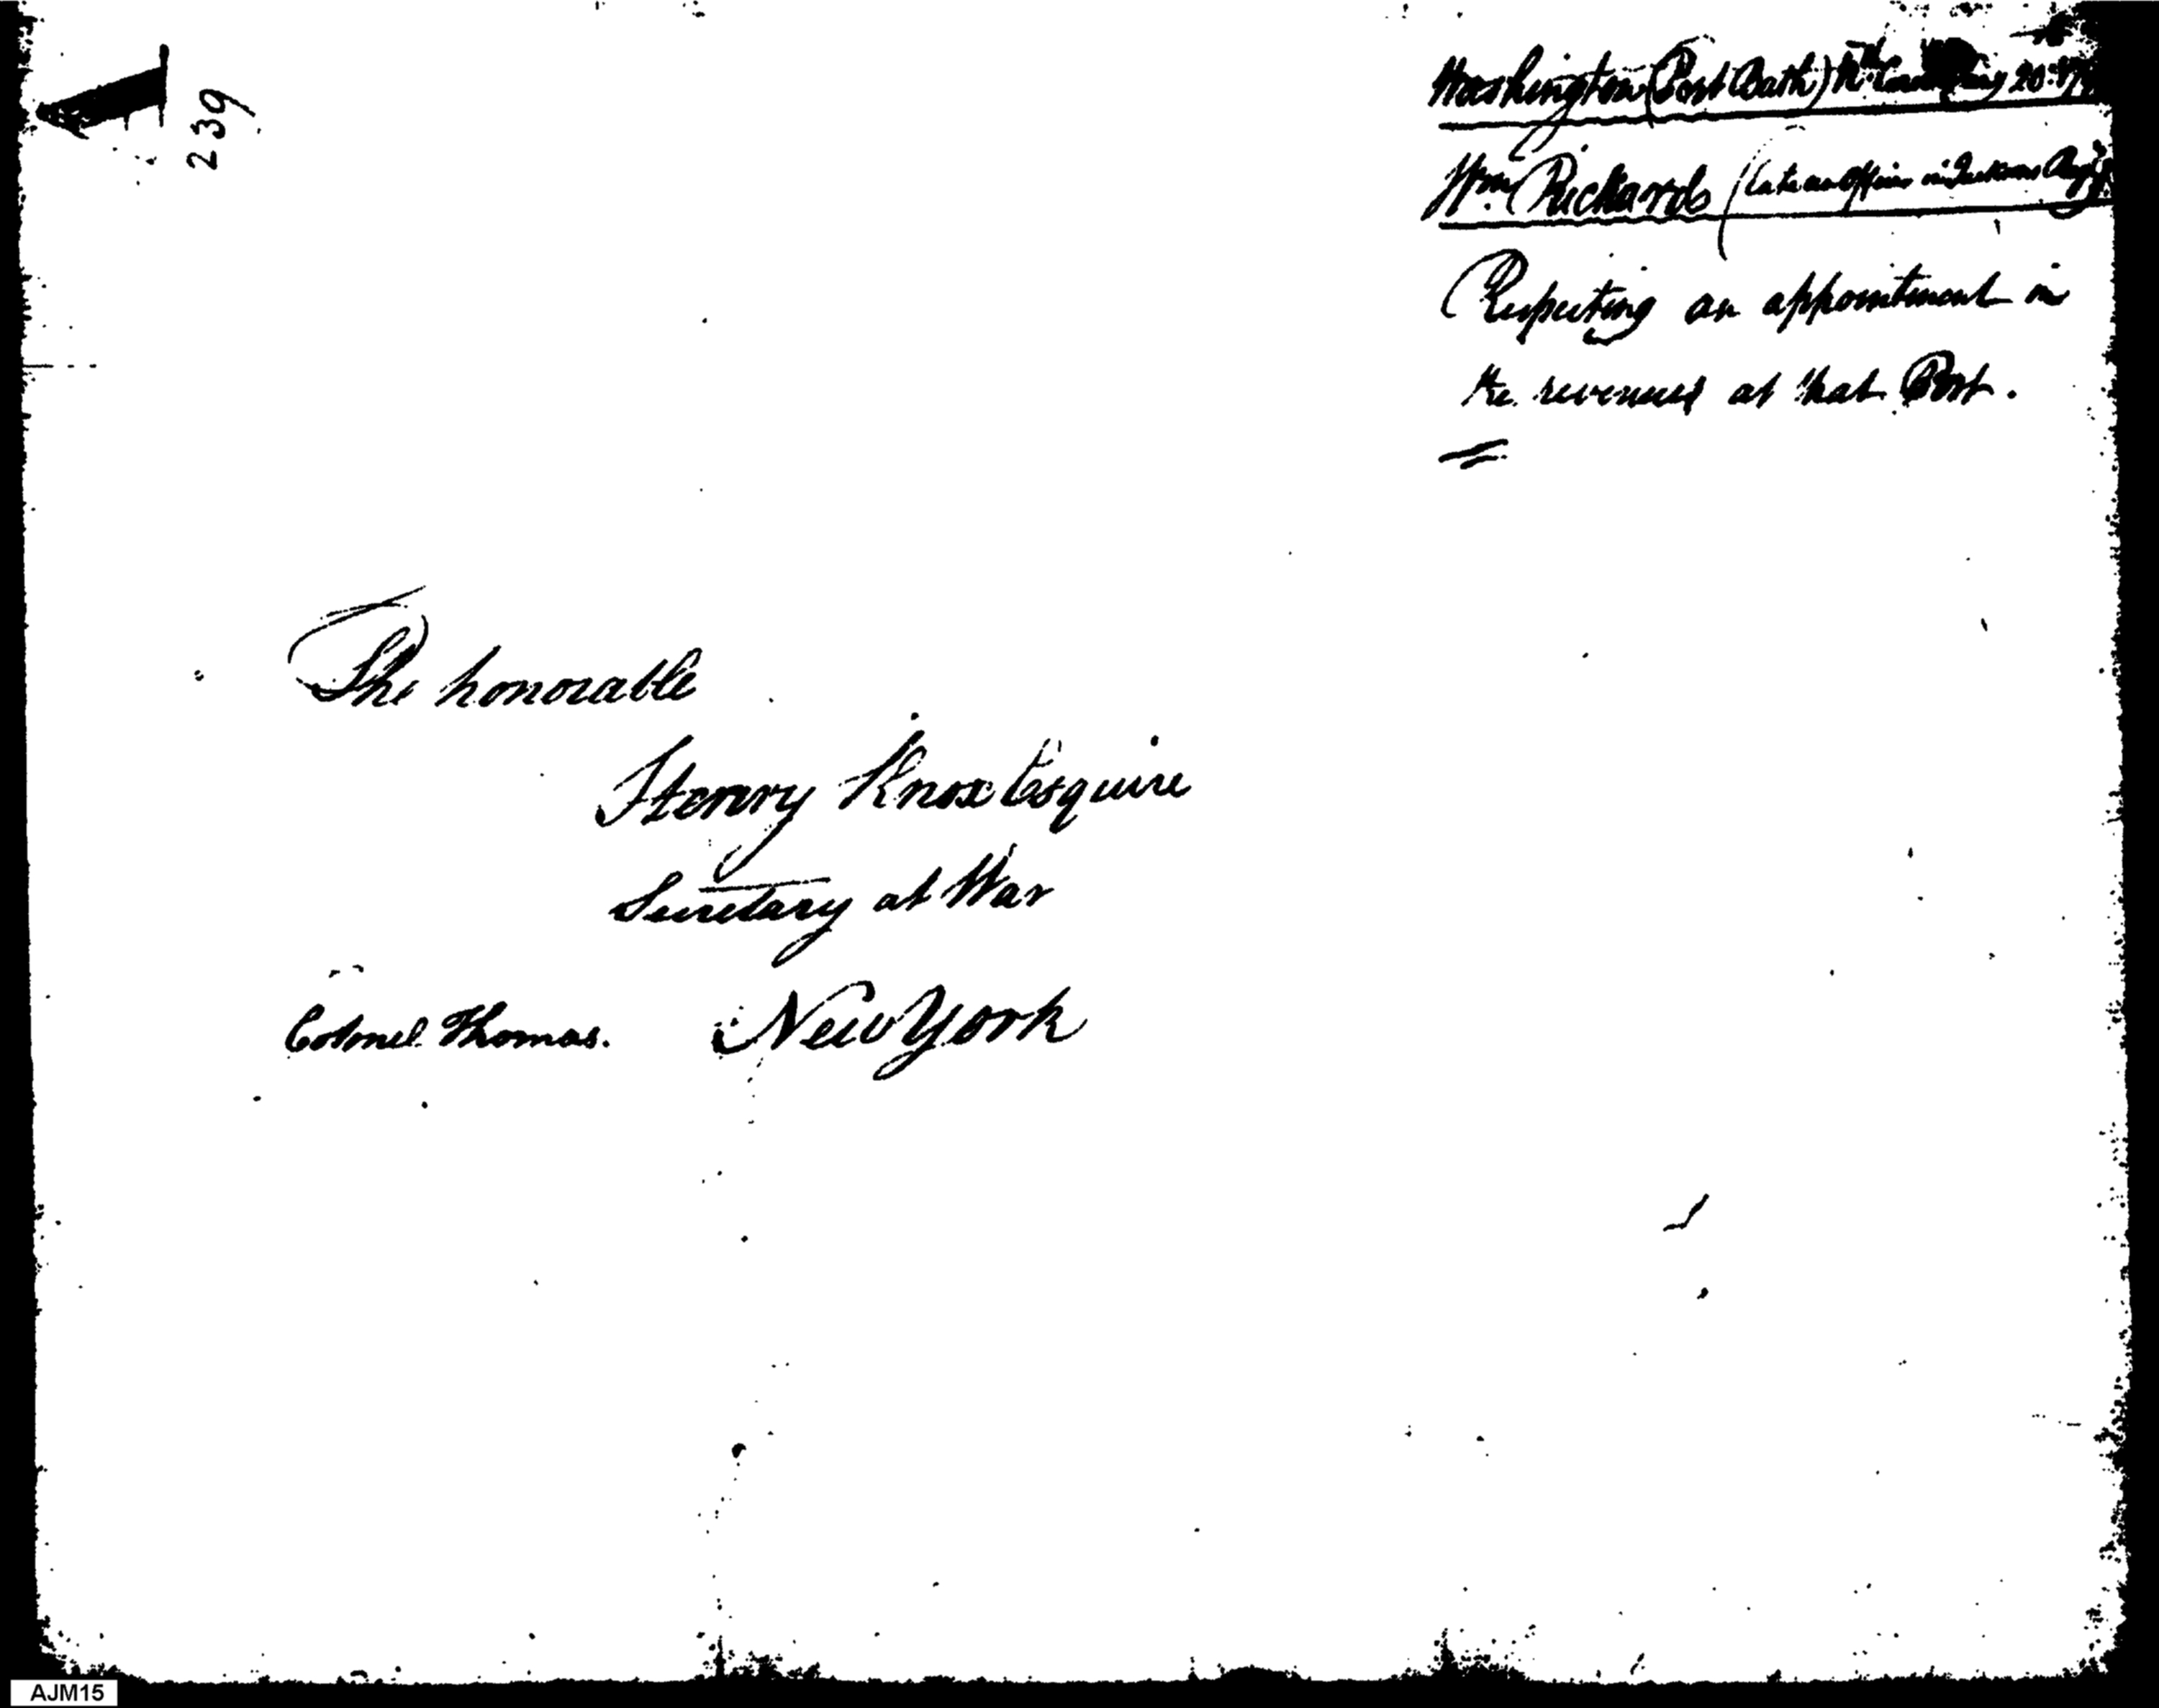 239
Washington (Port Bath) No. Carolina 20
Wm. Richards (late an officer in the Army
Respecting an appointment in
the revenues at that Port.
The honorable
Henry Knox Esquire
Secretary at War
Colonel Thomas. New York
AJM15